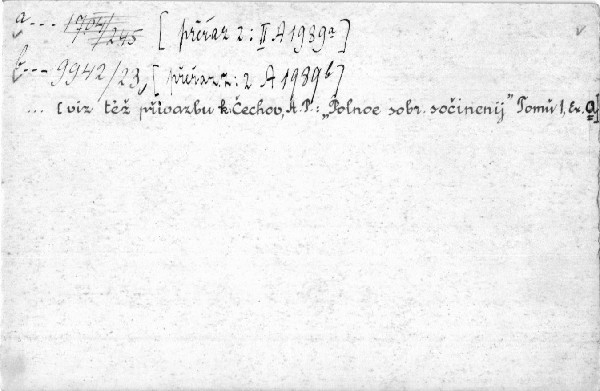 a... 1704/245 [přeřaz z: II A 1989a]
b--- 9942/23, [přeřaz. z: 2 A 1989b]
... [viz též přívazbu k: Čechov, A. P.: „Polnoe sobr. sočinenij" Tomů 1, Ex. a]